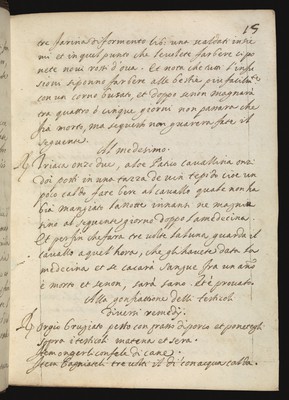 15
tre farina di formento lib. una scaldati insie
mi et in quel punto che le volete far bere
nete novi rossi d'ova. Et nota che con
sioni si ponno far bere alle bestie più facilmte
con un corno busato, et doppo senon magnera
tra quattro ò cinque giorni non passera che
sia morto, ma se guarira fate il
seguente.
Al medesimo.
Triaca onze due, aloe Patico cavallina onza
doi posti in una tazza de vin tepido cioe un
poco caldo fare bere al cavallo quale non ha
bia mangiato la notte innanti ne magna
sino al seguente giorno doppo la medecina.
Et per fin che fara tre volte la luna guarda il
cavallo a quell'hora, che gli havete data la
medecina et se cacara sangue fra un anno
è morto et senon, sarà sano. Et è provato.
Alla gonfiattione delli testicoli
diversi remedij.
Orgio brugiato pesto con grasso di porco et ponetegli
sopra i testicoli matena et sera.
Item ongerli con fele di cane.
Item bagniateli tre volte il dì con acqua calda.